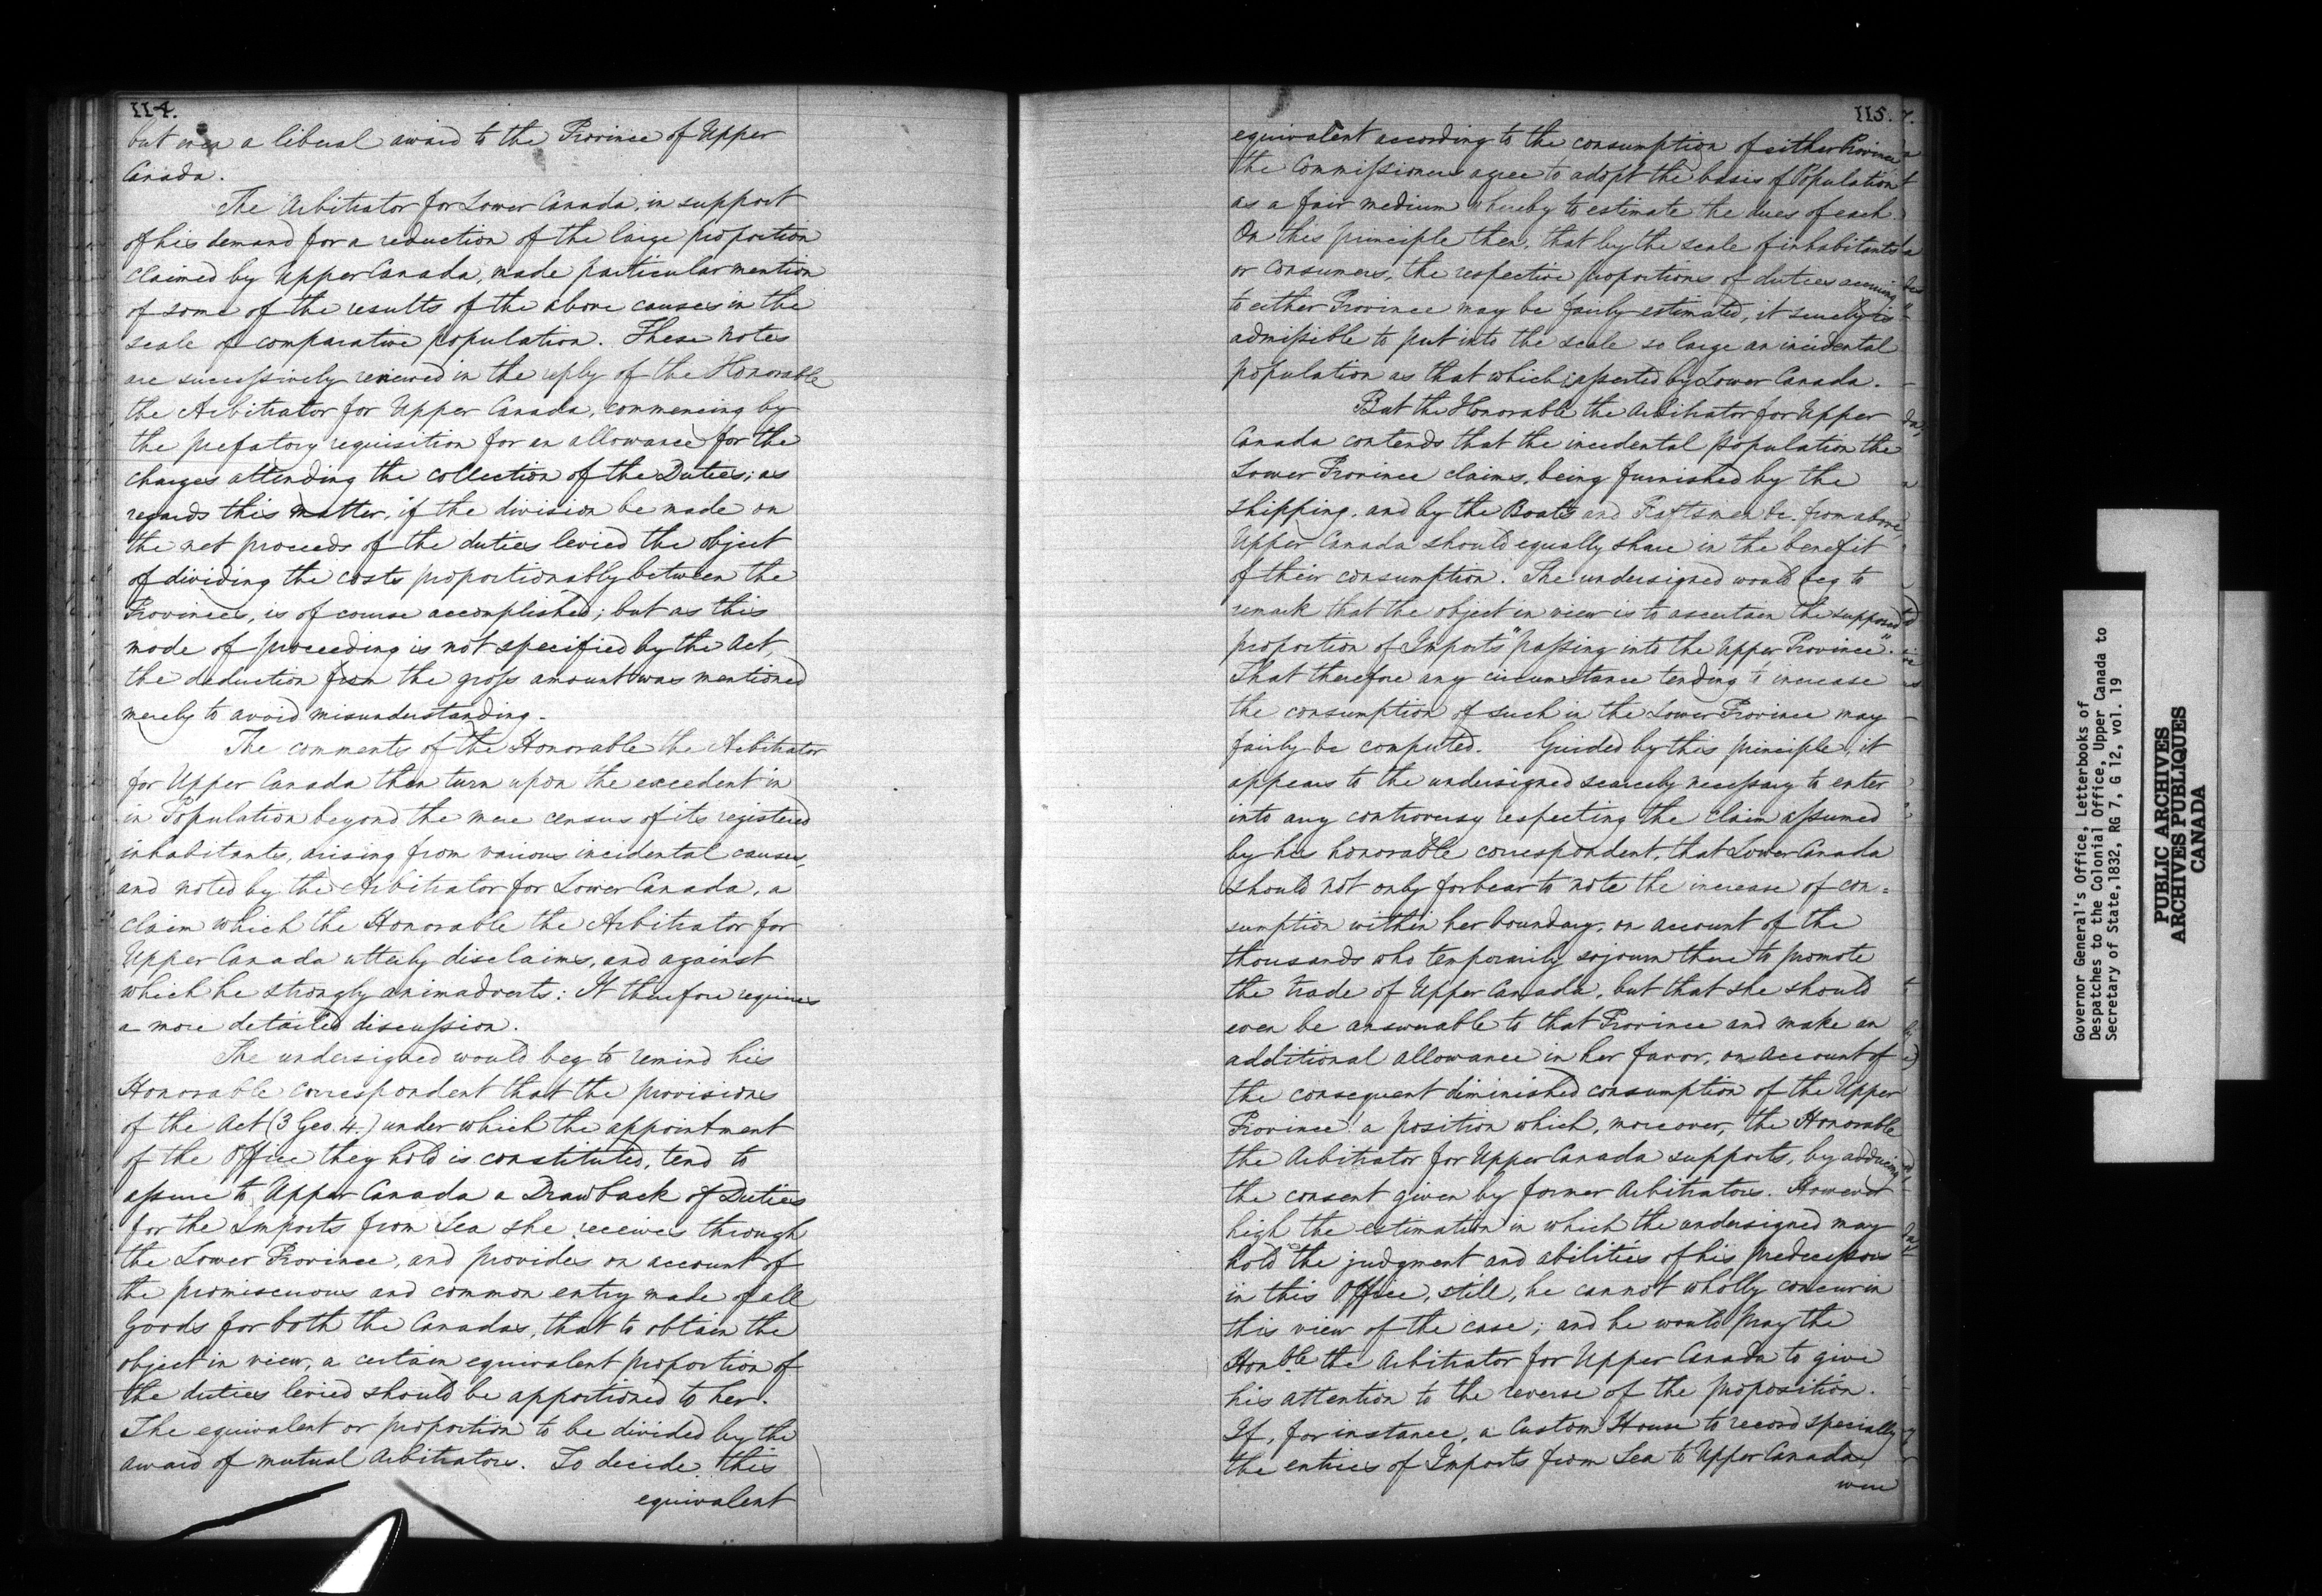 114.
but even a liberal award to the Province of Upper
Canada.
The Arbitrator for Lower Canada, in support
of his demand for a reduction of the large proportion
claimed by Upper Canada, made particular mention
of some of the results of the above causes in the
scale of comparative population. These notes
are successively reviewed in the reply of the Honorable
the Arbitrator for Upper Canada, commencing by
the prefatory requisition for an allowance for the
charges attending the collection of the Duties; as
regards this matter, if the division be made on
the net proceeds of the duties levied the object
of dividing the costs proportionably between the
Provinces, is of course accomplished; but as this
mode of proceeding is not specified by the Act,
the deduction from the gross amount was mentioned
merely to avoid misunderstanding.
The comments of the Honorable the Arbitrator
for Upper Canada then turn upon the excedent in
in Population beyond the mere census of its registered
inhabitants, arising from various incidental causes,
and noted by the Arbitrator for Lower Canada, a
claim which the Honorable the Arbitrator for
Upper Canada utterly disclaims, and against
which he strongly animadverts: It therefore requires
a more detailed discussion.
The undersigned would beg to remind his
Honorable correspondent that the provisions
of the Act (3 Geo. 4.) under which the appointment
of the Office they hold is constituted, tend to
assure to Upper Canada a Drawback of Duties
for the Imports from Sea she receives through
the Lower Province, and provides on account of
the promiscuous and common entry made of all
Goods for both the Canadas, that to obtain the
object in view, a certain equivalent proportion of
the duties levied should be apportioned to her.
The equivalent or proportion to be divided by the
award of mutual Arbitrators. To decide this
equivalent
115.
equivalent according to the consumption of either Province
the Commissioners agree to adopt the basis of Population
as a fair medium whereby to estimate the dues of each.
On this principle then, that by the scale of inhabitants
or consumers, the respective proportions of duties accruing
to either Province may be fairly estimated, it surely is
admissible to put into the scale so large an incidental
population as that which is asserted by Lower Canada.
But the Honorable the Arbitrator for Upper
Canada contends that the incidental population the
Lower Province claims, being furnished by the
shipping, and by the Boats and Raftsmen &c. from above,
Upper Canada should equally share in the benefit
of their consumption. The undersigned would beg to
remark that the object in view is to ascertain the supposed
proportion of Imports "passing into the Upper Province".
That therefore any circumstance tending to increase
the consumption of such in the Lower Province may
fairly be computed. Guided by this principle, it
appears to the undersigned scarcely necessary to enter
into any controversy respecting the claim assumed
by his honorable correspondent, that Lower Canada
should not only forbear to note the increase of con=
sumption within her boundary, on account of the
thousands who temporarily sojourn there to promote
the trade of Upper Canada, but that she should
even be answerable to that Province and make an
additional allowance in her favor, on account of
the consequent diminished consumption of the Upper
Province! a position which, moreover, the Honorable
the Arbitrator for Upper Canada supports, by adducing
the consent given by former Arbitrators. However
high the estimation in which the undersigned may
hold the judgment and abilities of his predecessors
in this Office, still, he cannot wholly concur in
this view of the case; and he would pray the
Honble the Arbitrator for Upper Canada to give
his attention to the reverse of the proposition.
If, for instance, a Custom House to record specially
the entries of Imports from Sea to Upper Canada,
were
Governor General's Office, Letterbooks of
Despatches to the Colonial Office, Upper Canada to
Secretary of State,1832, RG 7, G 12, vol. 19
PUBLIC ARCHIVES
ARCHIVES PUBLIQUES
CANADA